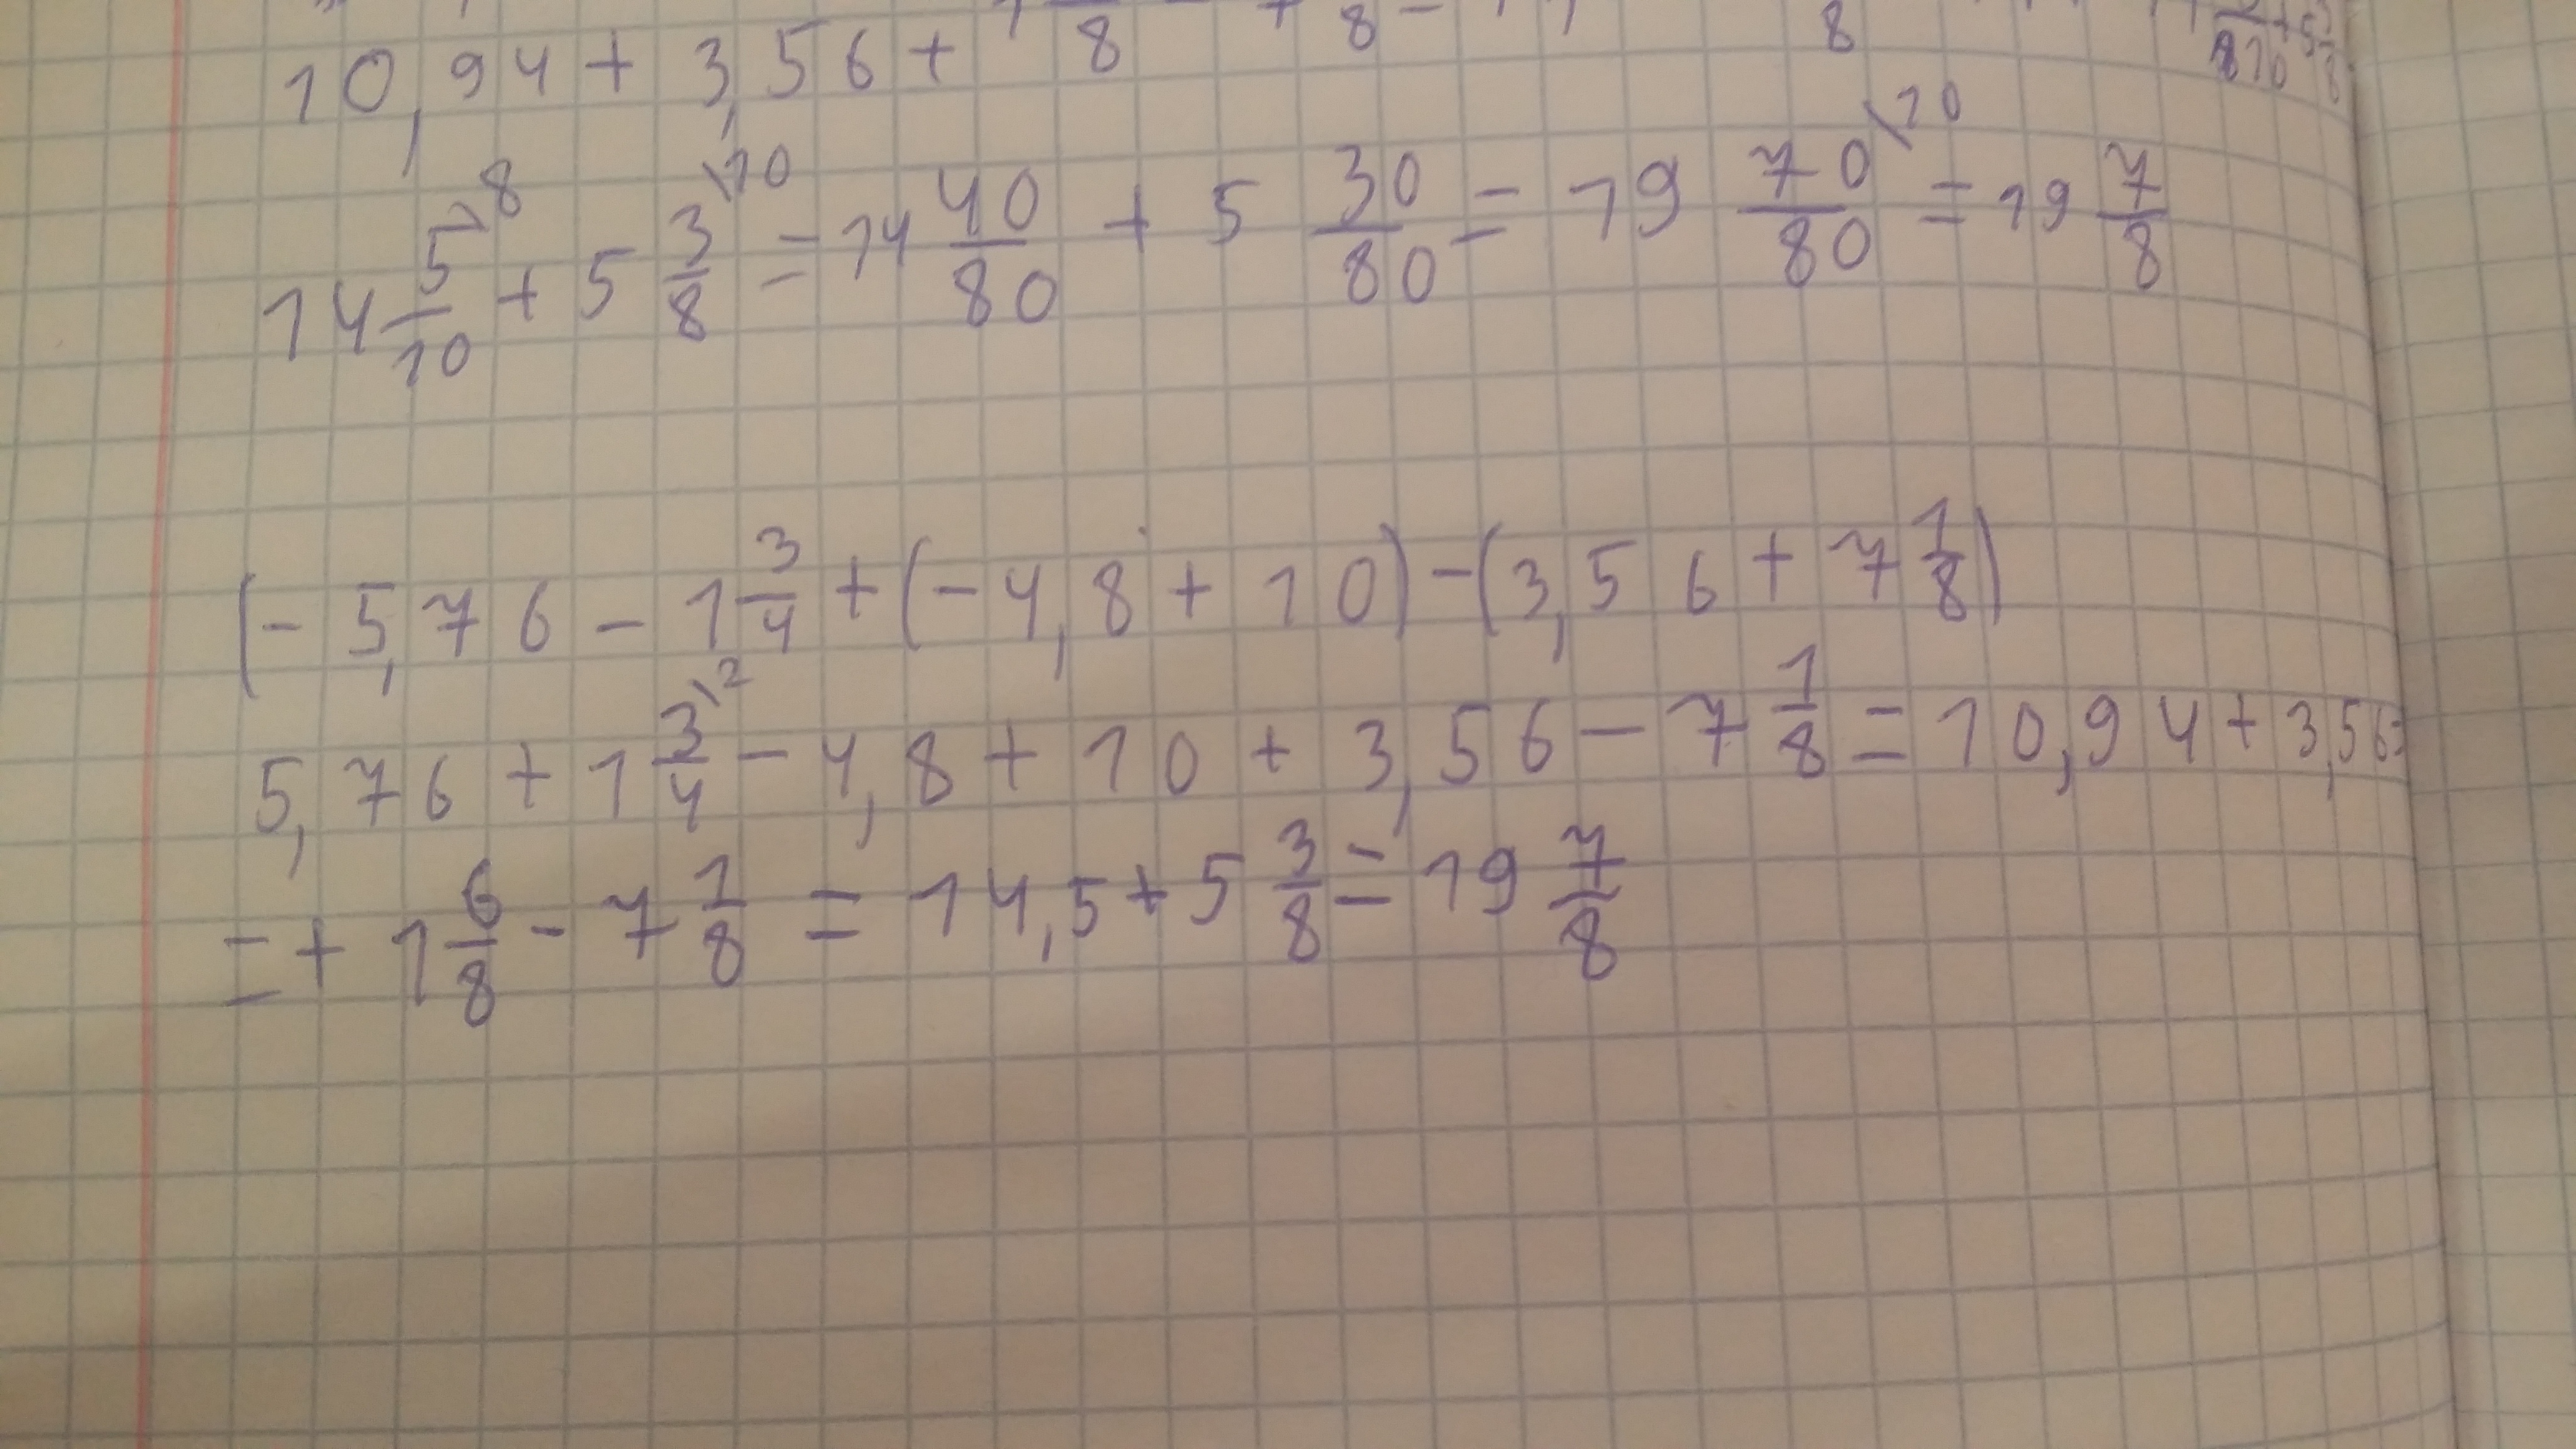 10,94 + 3,56 +
14 5/10 \8 + 5 3/8 \10 = 14 40/80 + 5 30/80 = 19 70/80 \10 = 19 7/8
(- 5,76 - 1 3/4 + (-4,8 + 10) - (3,56 + 7 1/8)
5,76 + 1 3/4 \2 - 4,8 + 10 + 3,56 - 7 1/8 = 10,94 + 3,56=
= + 1 6/8 - 7 1/8 = 14,5 + 5 3/8 = 19 7/8